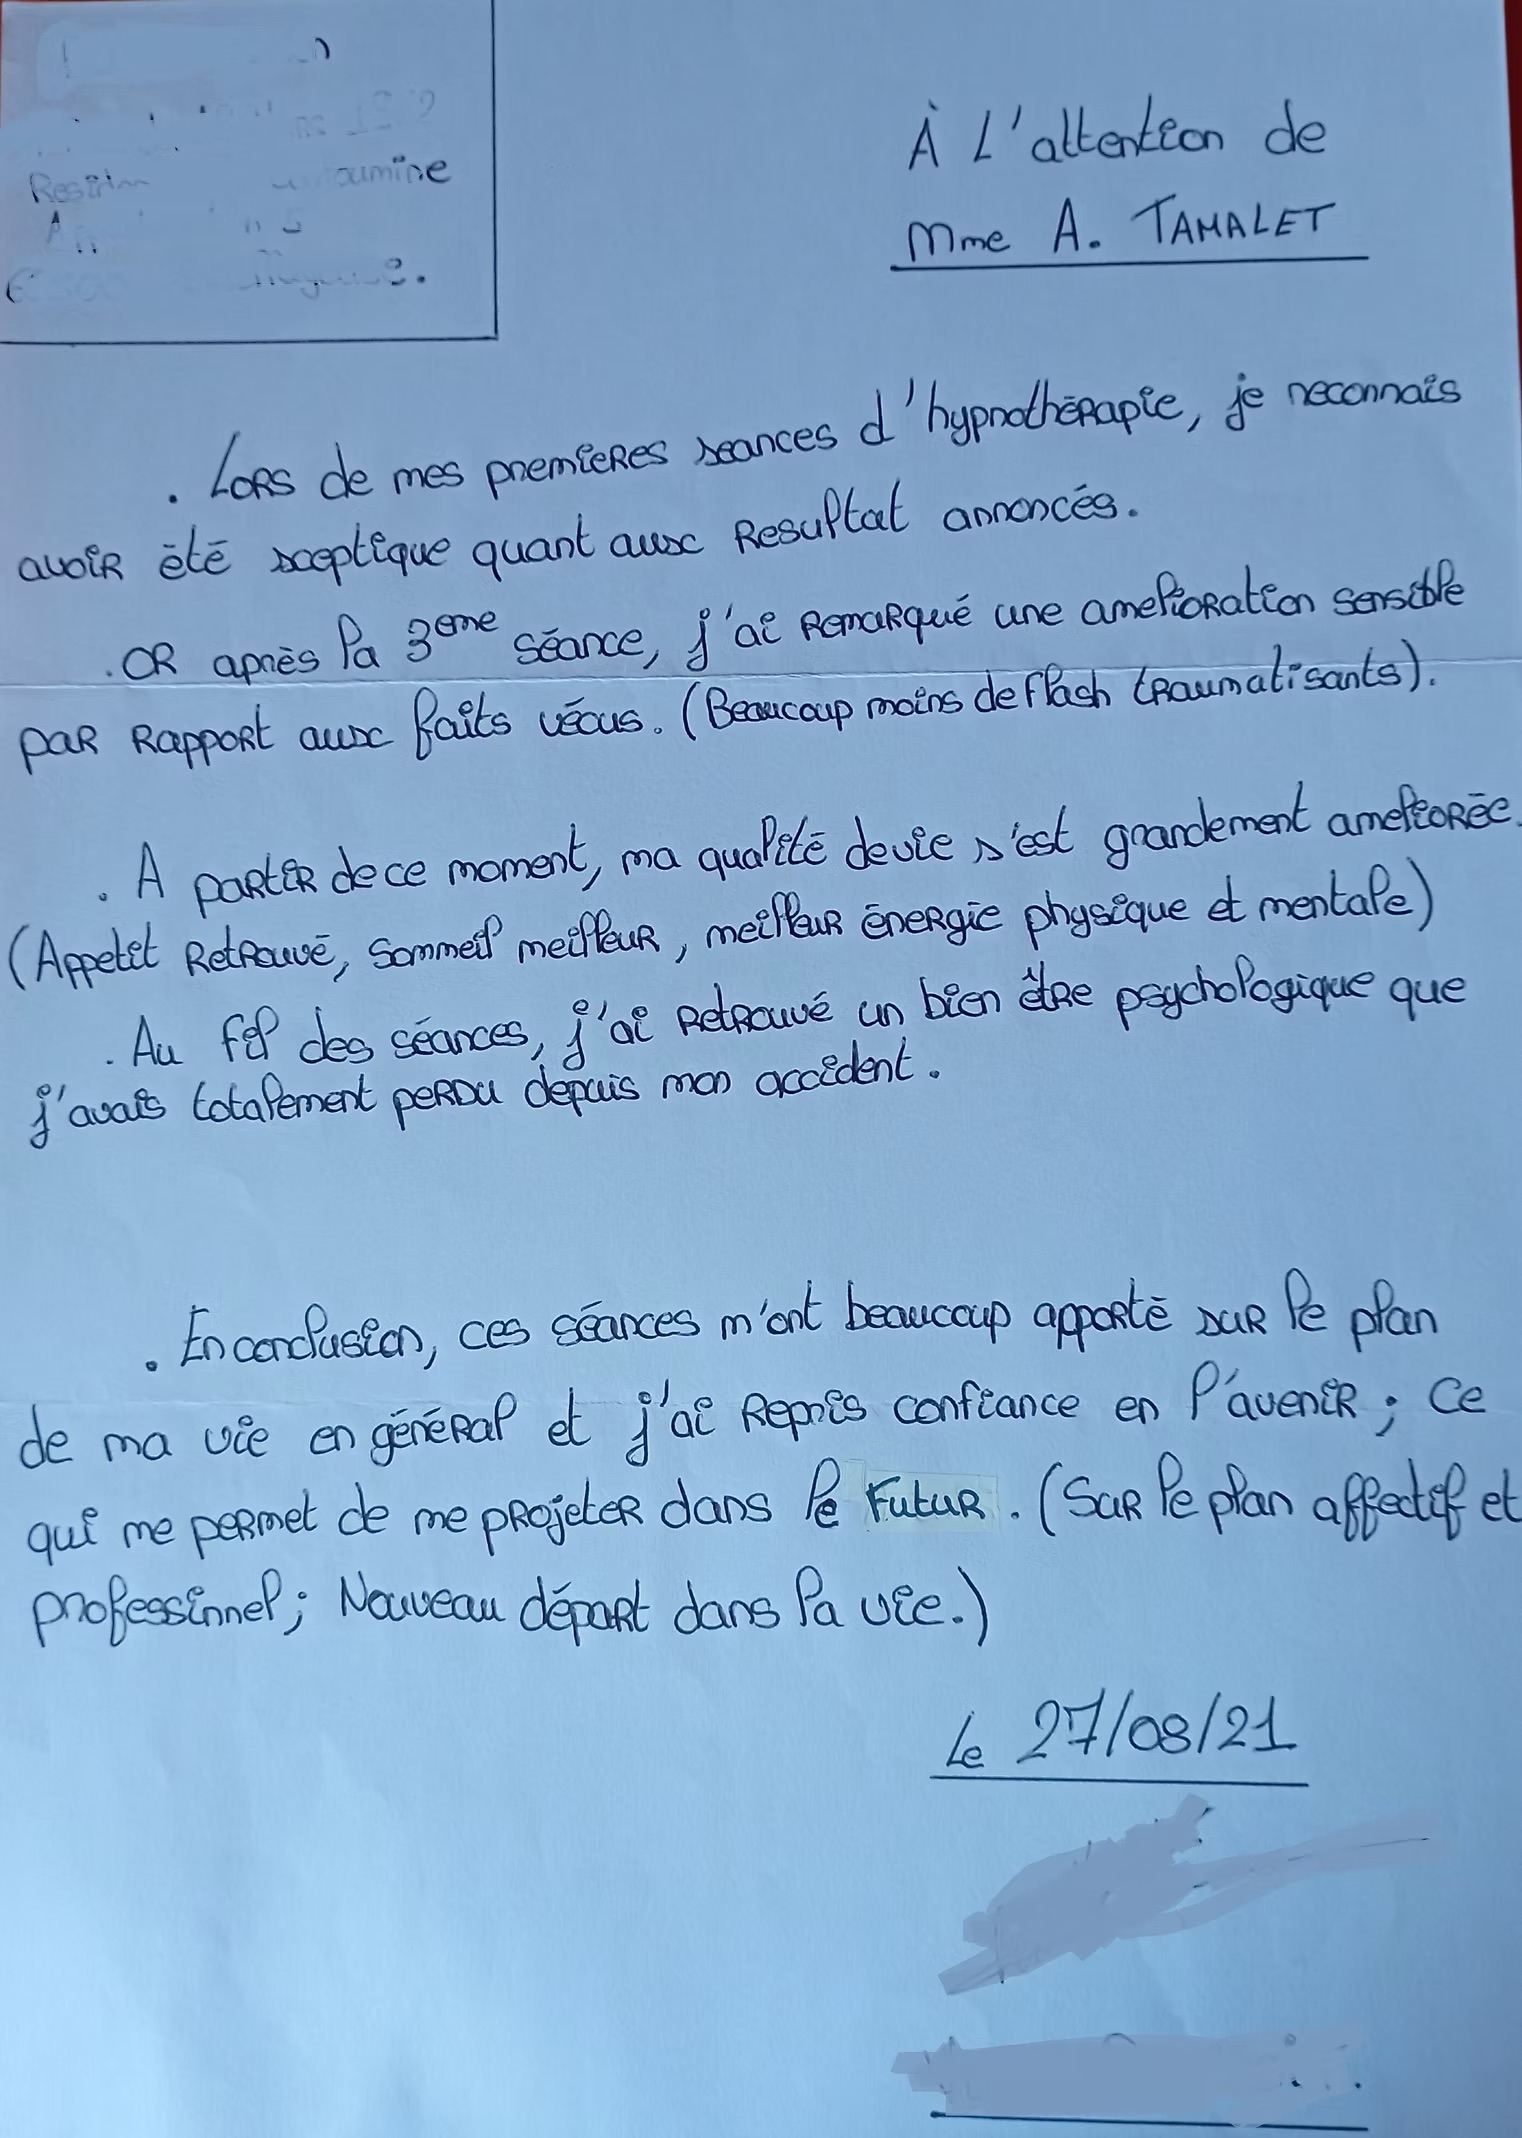 À L'attention de
Mme A. TAMALET
. Lors de mes premieres seances d'hypnothérapie, je reconnais
avoir été sceptique quant aux Resultat annoncés.
. OR après la 3eme séance, j'ai Remarqué une amelioration sensible
par Rapport aux faits vécus. (Beaucoup moins de flash traumatisants).
. A partir de ce moment, ma qualité de vie s'est grandement ameliorée.
(Appetit Retrouvé, Sommeil meilleur, meilleur énergie physique et mentale)
. Au fil des séances, j'ai Retrouvé un bien être psychologique que
j'avais totalement perdu depuis mon accident.
. En conclusion, ces séances m'ont beaucoup apporté sur le plan
de ma vie en général et j'ai Repris confiance en l'avenir ; Ce
qui me permet de me projeter dans le Futur. (Sur le plan affectif et
professinnel ; Nouveau départ dans la vie.)
Le 27/08/21